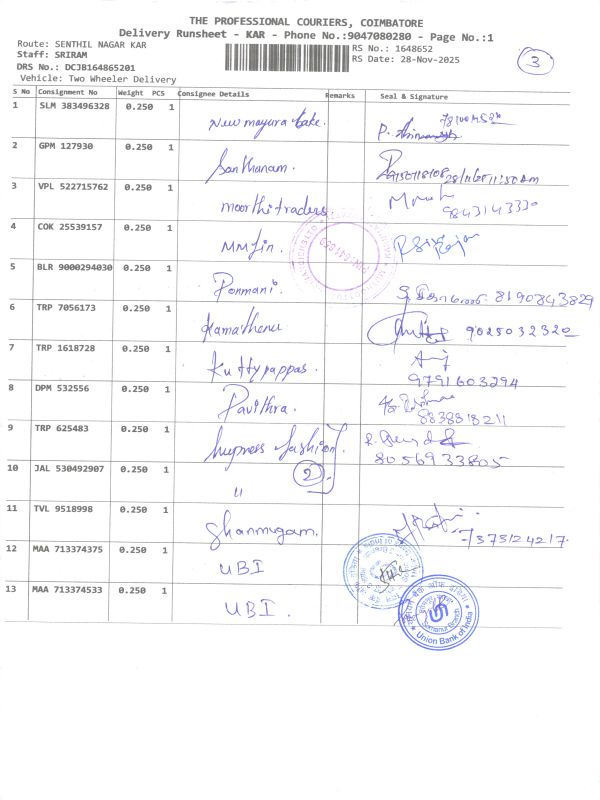 THE PROFESSIONAL COURIERS, COIMBATORE
Delivery Runsheet - KAR - Phone No.:9047080280 - Page No.:1
Route: SENTHIL NAGAR KAR
Staff: SRIRAM
DRS No.: DCJB164865201
Vehicle: Two Wheeler Delivery
RS No.: 1648652
RS Date: 28-Nov-2025
3
S No Consignment No Weight PCS Consignee Details Remarks Seal & Signature
1 SLM 383496328 0.250 1 New mayura Cake.
2 GPM 127930 0.250 1 Santhanam.
3 VPL 522715762 0.250 1 moorthi traders. 9843143330
4 COK 25539157 0.250 1 MM fin.
5 BLR 9000294030 0.250 1 Ponmani. 8190843829
6 TRP 7056173 0.250 1 Kamathenu 9025032320
7 TRP 1618728 0.250 1 Kuttypappas. 9791603294
8 DPM 532556 0.250 1 Pavithra. 8838818211
9 TRP 625483 0.250 1 fashion 8056933805
2
10 JAL 530492907 0.250 1 "
11 TVL 9518998 0.250 1 Shanmugam. 7373124217.
12 MAA 713374375 0.250 1 UBI
13 MAA 713374533 0.250 1 UBI.
Somanur Branch
Union Bank of India